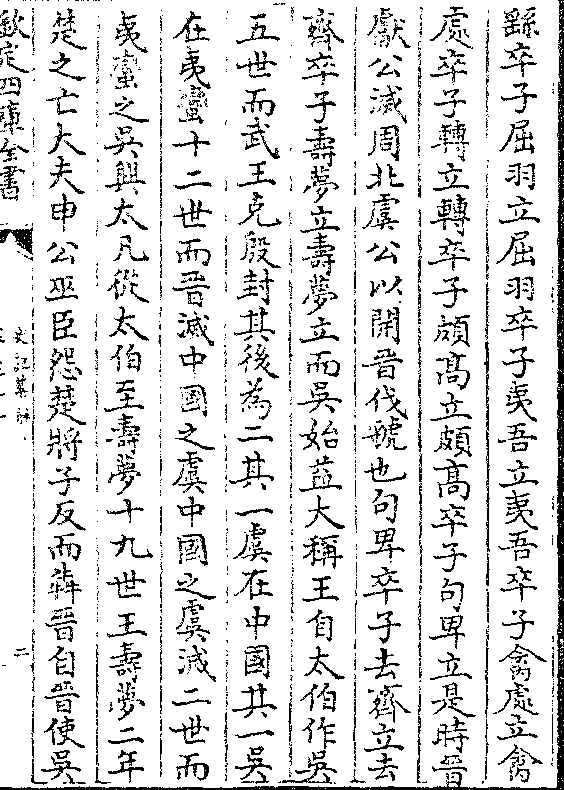 繇卒子屈羽立屈羽卒子夷吾立夷吾卒子禽處立禽
處卒子轉立轉卒子頗髙立頗髙卒子句卑立是時晉
獻公滅周北虞公以開晉伐虢也句卑卒子去齊立去
齊卒子壽夢立壽夢立而吳始益大稱王自太伯作吳
五世而武王克殷封其後為二其一虞在中國其一吳
在夷蠻十二世而晉滅中國之虞中國之虞滅二世而
夷蠻之吳興大凡從太伯至壽夢十九世王壽夢二年
楚之亡大夫申公巫臣怨楚將子反而犇晉自晉使吳
欽定四庫全書
二